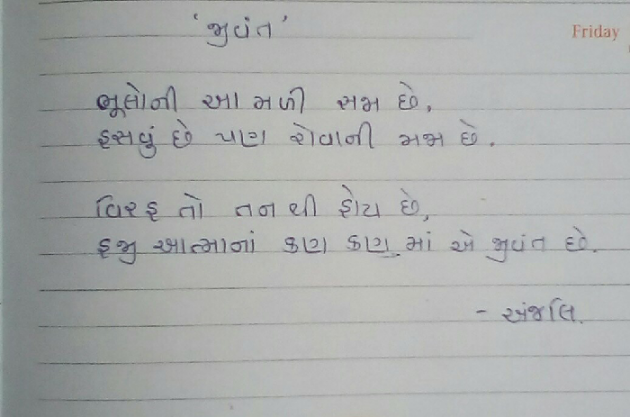 'જીવંત'
Friday
ભૂલોની આ મળી સજા છે,
હસવું છે પણ રોવાની મજા છે.
વિરહ તો તન થી હોય છે,
હજી આત્માનાં કણ કણ માં એ જીવંત છે.
- અંજલિ.